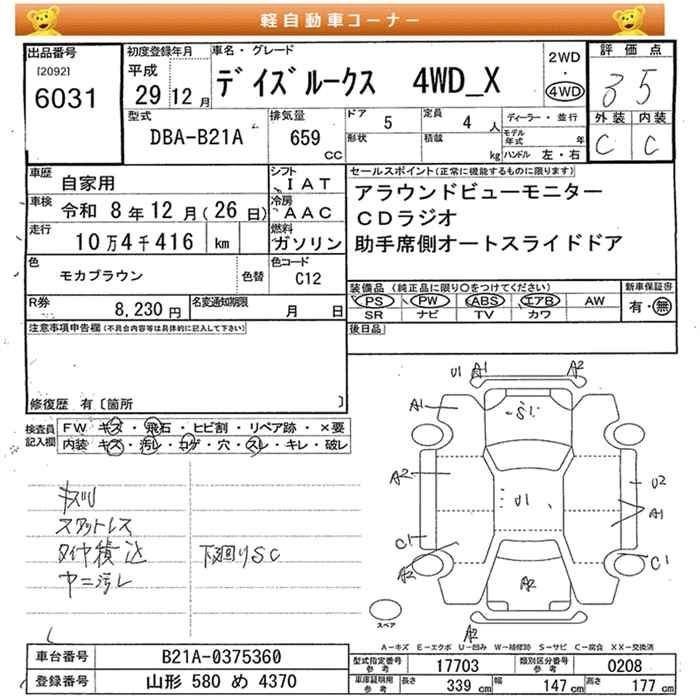 軽自動車コーナー
出品番号
[2092]
6031
初度登録年月
平成
29 12 月
車名・グレード
デイズルークス 4WD_X
2WD
・
4WD
評価点
3 5
外装 内装
C C
型式
DBA-B21A
排気量
659
CC
ドア
5
定員
4 人
形状
積載
kg
ディーラー・並行
モデル年式 年
ハンドル 左・右
車歴
自家用
シフト
IAT
車検
令和 8年 12月(26日)
冷房
AAC
走行
10万4千416 km
燃料
ガソリン
色
モカブラウン
色替
色コード
C12
R券
8,230 円
名変通知期限
月 日
セールスポイント(正常に機能するものに限ります)
アラウンドビューモニター
CDラジオ
助手席側オートスライドドア
装備品(純正品に限り○をつけてください)
PS PW ABS エアB AW
SR ナビ TV カワ
新車保証書
有・無
後日品
注意事項申告欄(不具合内容等は具体的に記入して下さい)
修復歴 有〔箇所 〕
検査員
記入欄
FW キズ・飛石・ヒビ割・リペア跡・×要
内装 キズ・汚レ・コゲ・穴・スレ・キレ・破レ
キズU
スタットレス
タイヤ積込
ヤニ汚レ
下廻りSC
U1 A1 A2
A1
S1
A2
U1
U2
A1
C1
A2
C1
A2
スペア
A-キズ E-エクボ U-凹み W-補修跡 S-サビ C-腐食 XX-交換済
車台番号
B21A-0375360
登録番号
山形 580 め 4370
型式指定番号
参考
17703
類別区分番号
参考
0208
車庫証明用
参考
長さ 339 cm
幅 147 cm
高さ 177 cm